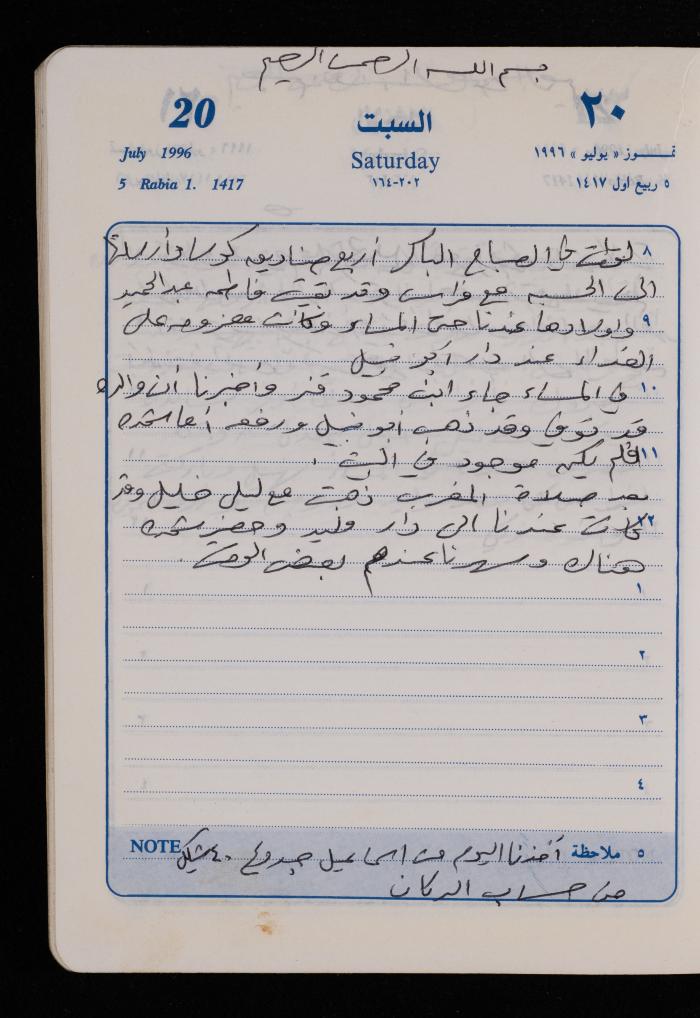 بسم الله الرحمن الرحيم
20 السبت ٢٠
July 1996 Saturday تمـــوز « يوليو » ١٩٩٦
5 Rabia 1. 1417 ٢٠٢-١٦٤ ٥ ربيع اول ١٤١٧
٨ في الصباح الباكر أربع صناديق كوسا وأرسلتها
الى الحسبه مع فراس وقد بقيت فاطمه عبدالحميد
٩ وأولادها عندنا حتى المساء وكانت معزومه على
الغداء عند دار أبو نبيل
١٠ في المساء جاء ابن محمود وأخبرنا أن والده
قد توفي وقد ذهب أبو نبيل ورفعه
١١ فلم يكن موجود في البيت .
بعد صلاة المغرب ذهبت مع ليلى خليل وقد
١٢ كانت عندنا الى دار وليد وحضر
هناك وسهرنا عندهم بعض الوقت .
١
٢
٣
٤
٥ ملاحظة أخذنا اليوم من اسماعيل ٤٠ شيكل NOTE
من حساب الدكان